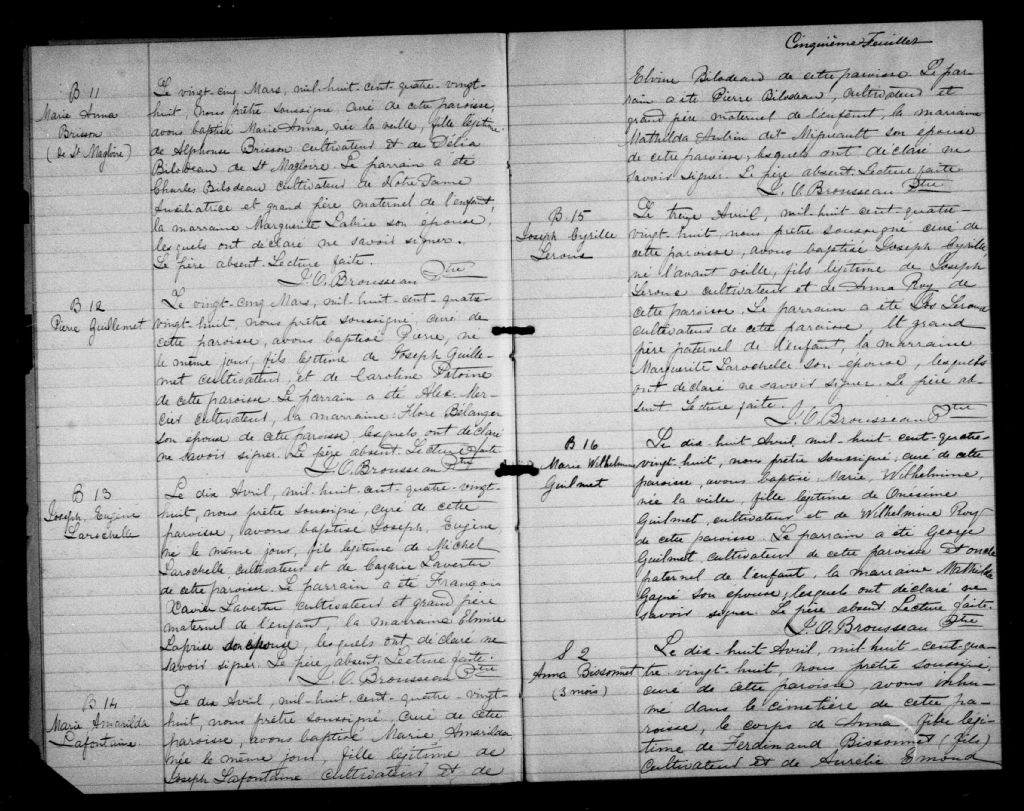 B 11
Marie Anna
Brisson
(de St Magloire)
Le vingt-cinq Mars, mil-huit-cent-quatre-vingt-
huit, nous prêtre soussigné, curé de cette paroisse,
avons baptisé Marie Anna, née la veille, fille légitime
de Alphonse Brisson cultivateur et de Délia
Bilodeau de St Magloire. Le parrain a été
Charles Bilodeau cultivateur de Notre Dame
Auxiliatrice et grand père maternel de l'enfant,
la marraine Marguerite Labrie son épouse,
lesquels ont déclaré ne savoir signer.
Le père absent. Lecture faite.
J. O. Brousseau Ptre
B 12
Pierre Guillemet
Le vingt-cinq Mars, mil-huit-cent-quatre-
vingt-huit, nous prêtre soussigné, curé de
cette paroisse, avons baptisé Pierre, né
le même jour, fils légitime de Joseph Guille-
met cultivateur, et de Caroline Patoine
de cette paroisse. Le parrain a été Alex. Mer-
cier cultivateur, la marraine Flore Bélanger
son épouse de cette paroisse lesquels ont déclaré
ne savoir signer. Le père absent. Lecture faite
J. O. Brousseau Ptre
B 13
Joseph. Eugène
Larochelle
Le dix Avril, mil-huit-cent-quatre-vingt-
huit, nous prêtre soussigné, curé de cette
paroisse, avons baptisé Joseph, Eugène
né le même jour, fils légitime de Michel
Larochelle, cultivateur et de Lavertu
de cette paroisse. Le parrain a été François
Xavier Lavertu cultivateur et grand père
maternel de l'enfant, la marraine Elmire
Laprise son épouse, lesquels ont déclaré ne
savoir signer. Le père absent. Lecture faite.
J. O. Brousseau Ptre
B 14
Marie Amarilda
Lafontaine.
Le dix Avril, mil-huit-cent-quatre-vingt-
huit, nous prêtre soussigné, curé de cette
paroisse, avons baptisé Marie Amarilda
née le même jour, fille légitime de
Joseph Lafontaine cultivateur et de
Cinquième Feuillet
Elvine Bilodeau de cette paroisse. Le par-
rain a été Pierre Bilodeau, cultivateur et
grand père maternel de l'enfant, la marraine
Mathilda Aubin dit Migneault son épouse
de cette paroisse, lesquels ont déclaré ne
savoir signer. Le père absent. Lecture faite
J. O. Brousseau Ptre
B 15
Joseph Cyrille
Leroux
Le treize Avril, mil-huit-cent-quatre-
vingt-huit, nous prêtre soussigné curé de
cette paroisse, avons baptisé Joseph Cyrille,
né l'avant veille, fils légitime de Joseph
Leroux cultivateur et de Anna Roy de
cette paroisse. Le parrain a été Leroux
cultivateur de cette paroisse, et grand
père paternel de l'enfant, la marraine
Marguerite Larochelle son épouse, lesquels
ont déclaré ne savoir signer. Le père ab-
sent. Lecture faite.
J. O. Brousseau Ptre
B 16
Marie Wilhelmine
Guilmet
Le dix-huit Avril mil-huit-cent-quatre-
vingt-huit, nous prêtre soussigné, curé de cette
paroisse, avons baptisé Marie, Wilhelmine,
née la veille, fille légitime de Onesime
Guilmet, cultivateur et de Wilhelmine Roy
de cette paroisse. Le parrain a été George
Guilmet, cultivateur de cette paroisse et oncle
paternel de l'enfant, la marraine Mathilde
Gagné son épouse, lesquels ont déclaré ne
savoir signer. Le père absent Lecture faite.
J. O. Brousseau Ptre
S 2
Anna Bissonnet
(3 mois)
Le dix-huit Avril, mil-huit-cent-qua-
tre-vingt-huit, nous prêtre soussigné,
curé de cette paroisse, avons inhu-
mé dans le cimetière de cette pa-
roisse, le corps de Anna, fille légi-
time de Ferdinand Bissonnet (fils)
cultivateur et de Aurélie Emond